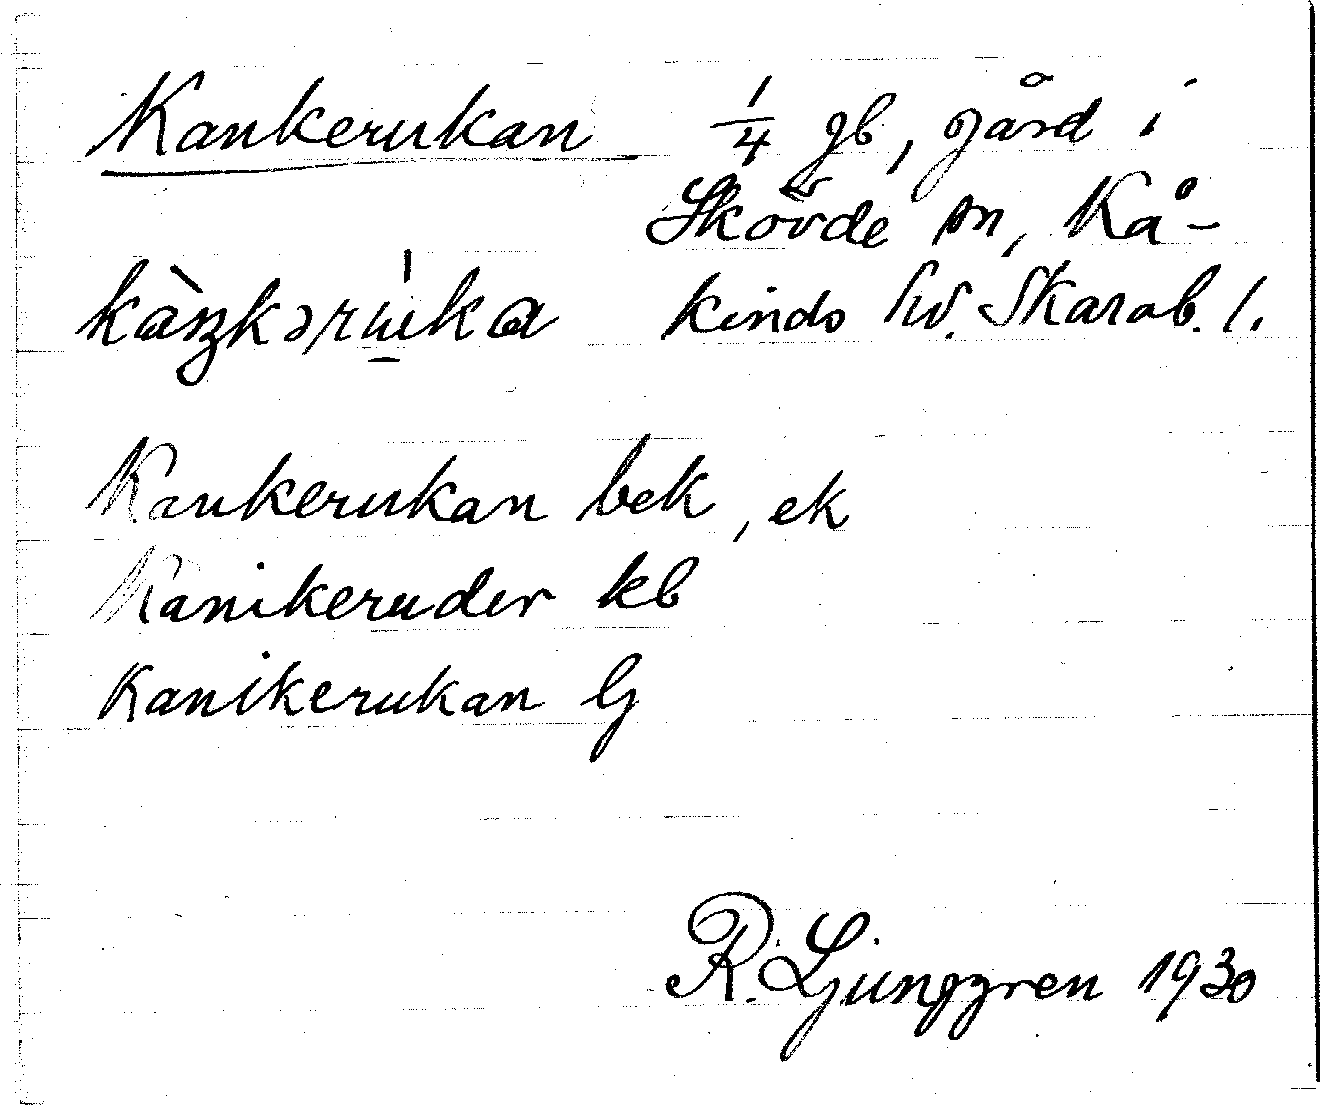 Kankerukan 1/4 gb, gård i
Skövde sn, Kå-
kinds hd. Skarab. l.
Kankerukan bek, ek
Kanikeruder kb
Kanikerukan G
R. Ljunggren 1930